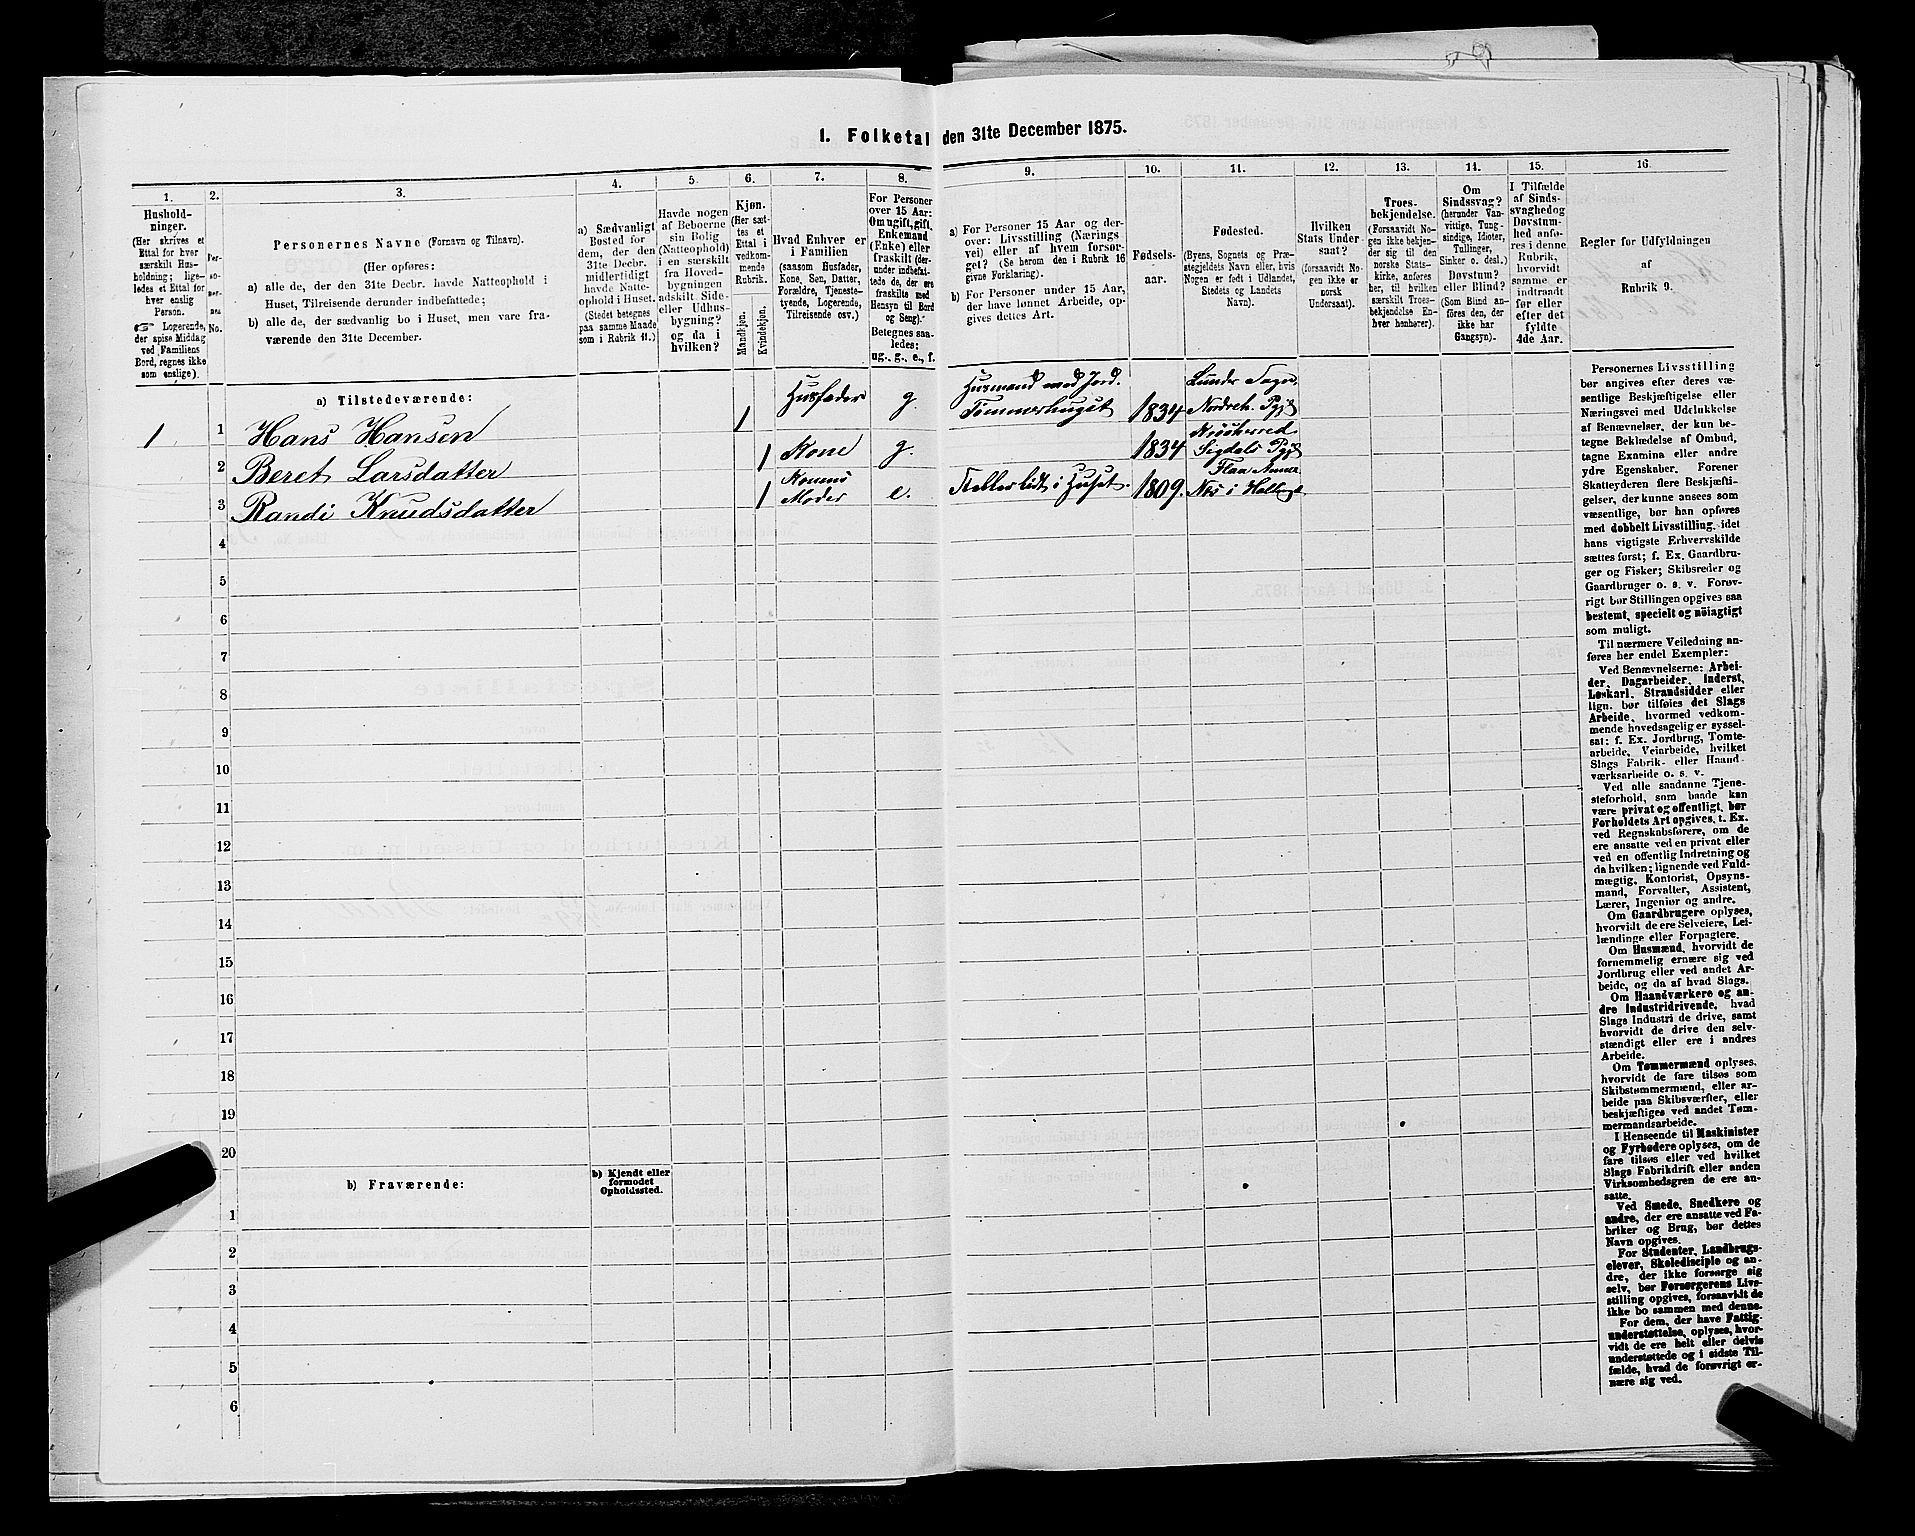 1. Folketal den 31te December 1875.
1. 2. 3. 4. 5. 6. 7. 8. 9. 10. 11. 12. 13. 14. 15. 16.
Hushold-
ninger.
(Her skrives et
Ettal for hver
særskilt Hus-
holdning; lige-
ledes et Ettal for
hver enslig
Person.
☞ Logerende,
der spise Middag
ved Familiens
Bord, regnes ikke
som enslige).
Per-
so-
ner-
nes
No.
Personernes Navne (Fornavn og Tilnavn).
(Her opføres:
a) alle de, der den 31te Decbr. havde Natteophold i
Huset, Tilreisende derunder indbefattede;
b) alle de, der sædvanlig bo i Huset, men vare fra-
værende den 31te December.
a) Sædvanligt
Bosted for
dem, der den
31te Decbr.
midlertidigt
havde Natte-
ophold i Huset.
(Stedet betegnes
paa samme Maade
som i Rubrik 11.)
Havde nogen
af Beboerne
sin Bolig
(Natteophold)
i en særskilt
fra Hoved-
bygningen
adskilt Side-
eller Udhus-
bygning?
og da i
hvilken?
Kjøn.
(Her sæt-
tes et
Ettal i
vedkom-
mende
Rubrik.
Mandkjøn.
Kvindekjøn.
Hvad Enhver er
i Familien
(saasom Husfader,
Kone, Søn, Datter,
Forældre, Tjeneste-
tyende, Logerende,
Tilreisende osv.)
For Personer
over 15 Aar:
Om ugift, gift,
Enkemand
(Enke) eller
fraskilt (der-
under indbefat-
tede de, der ere
fraskilte med
Hensyn til Bord
og Seng).
Betegnes saa-
ledes:
ug., g., e., f.
a) For Personer 15 Aar og der-
over: Livsstilling (Nærings
vei) eller af hvem forsør-
get? (Se herom den i Rubrik 16
givne Forklaring).
b) For Personer under 15 Aar,
der have lønnet Arbeide, op-
gives dettes Art.
Fødsels-
aar.
Fødested.
(Byens, Sognets og Præ-
stegjeldets Navn eller, hvis
Nogen er født i Udlandet,
Stedets og Landets
Navn).
Hvilken
Stats Under-
saat?
(forsaavidt No-
gen ikke er
norsk
Undersaat).
Troes-
bekjendelse.
(Forsaavidt No-
gen ikke bekjen-
der sig til den
norske Stats-
kirke, anføres
her, til hvilken
særskilt Troes-
bekjendelse En-
hver henhører).
Om
Sindssvag?
(herunder Van-
vittige, Tung-
sindige, Idioter,
Tullinger,
Sinker o. desl.)
Døvstum?
eller Blind?
(Som Blind an-
føres den, der
ikke har
Gangsyn).
I Tilfælde
af Sinds-
svaghed og
Døvstum-
hed anfø-
res i denne
Rubrik,
hvorvidt
samme er
indtraadt
før eller
efter det
fyldte
4de Aar.
Regler for Udfyldningen
af
Rubrik 9.
a) Tilstedeværende:
1 1 Hans Hansen 1 Husfader g. Husmand med Jord. Tømmerhugst 1834 Lunder Sogn. Norderh. Pgjd
2 Beret Larsdatter 1 Kone g. 1834 Krødsherred Sigdals Pgjd
3 Randi Knudsdatter 1 Konens Moder e. Føllesbidt i Huset. 1809. Flaa Annex. Nes i Halling.
4
5
6
7
8
9
10
11
12
13
14
15
16
17
18
19
20
b) Fraværende:
b) Kjendt eller
formodet
Opholdssted.
1
2
3
4
5
6
Personernes Livsstilling
bør angives efter deres væ-
sentlige Beskjæftigelse eller
Næringsvei med Udelukkelse
af Benævnelser, der kun be-
tegne Beklædelse af Ombud,
tagne Examina eller andre
ydre Egenskaber. Forener
Skatteyderen flere Beskjæfti-
gelser, der kunne ansees som
væsentlige, bør han opføres
med dobbelt Livsstilling, idet
hans vigtigste Erhvervskilde
sættes først; f. Ex. Gaardbru-
ger og Fisker; Skibsreder og
Gaardbruger o. s. v. Forøv-
rigt bør Stillingen opgives saa
bestemt, specielt og nøiagtigt
som muligt.
Til nærmere Veiledning an-
føres her endel Exempler:
Ved Benævnelserne: Arbei-
der, Dagarbeider, Inderst,
Løskarl, Strandsidder eller
lign. bør tilføies det Slags
Arbeide, hvormed vedkom-
mende hovedsagelig er syssel-
sat: f. Ex. Jordbrug, Tomte-
arbeide, Veiarbeide, hvilket
Slags Fabrik- eller Haand
værksarbeide o. s. v.
Ved alle saadanne Tjene-
steforhold, som baade kan
være privat og offentligt, bør
Forholdets Art opgives, t. Ex.
ved Regnskabsførere, om de
ere ansatte ved en privat eller
ved en offentlig Indretning og
da hvilken; lignende ved Fuld-
mægtig, Kontorist, Opsyns-
mand, Forvalter, Assistent,
Lærer, Ingeniør og andre.
Om Gaardbrugere oplyses,
hvorvidt de ere Selveiere, Lei-
lændinge eller Forpagtere.
Om Husmænd, hvorvidt de
fornemmelig ernære sig ved
Jordbrug eller ved andet Ar-
beide, og da af hvad Slags.
Om Haandværkere og an-
dre Industridrivende, hvad
Slags Industri de drive, samt
hvorvidt de drive den selv-
stændigt eller ere i andres
Arbeide.
Om Tømmermænd oplyses,
hvorvidt de fare tilsøs som
Skibstømmermænd, eller ar-
beide paa Skibsværfter, eller
beskjæftiges ved andet Tøm-
mermandsarbeide.
I Henseende til Maskinister
og Fyrbødere oplyses, om de
fare tilsøs eller ved hvilket
Slags Fabrikdrift eller anden
Virksomhedsgren de ere an-
satte.
Ved Smede, Snedkere og
andre, der ere ansatte ved Fa-
briker og Brug, bør dettes
Navn opgives.
For Studenter, Landbrugs-
elever, Skoledisciple og an-
dre, der ikke forsørge sig
selv, bør Forsørgerens Livs-
stilling opgives, forsaavidt de
ikke bo sammen med denne.
For dem, der have Fattig-
understøttelse, oplyses, hvor-
vidt de ere helt eller delvis
understøttede og i sidste Til-
fælde, hvad de forøvrigt er-
nære sig ved.